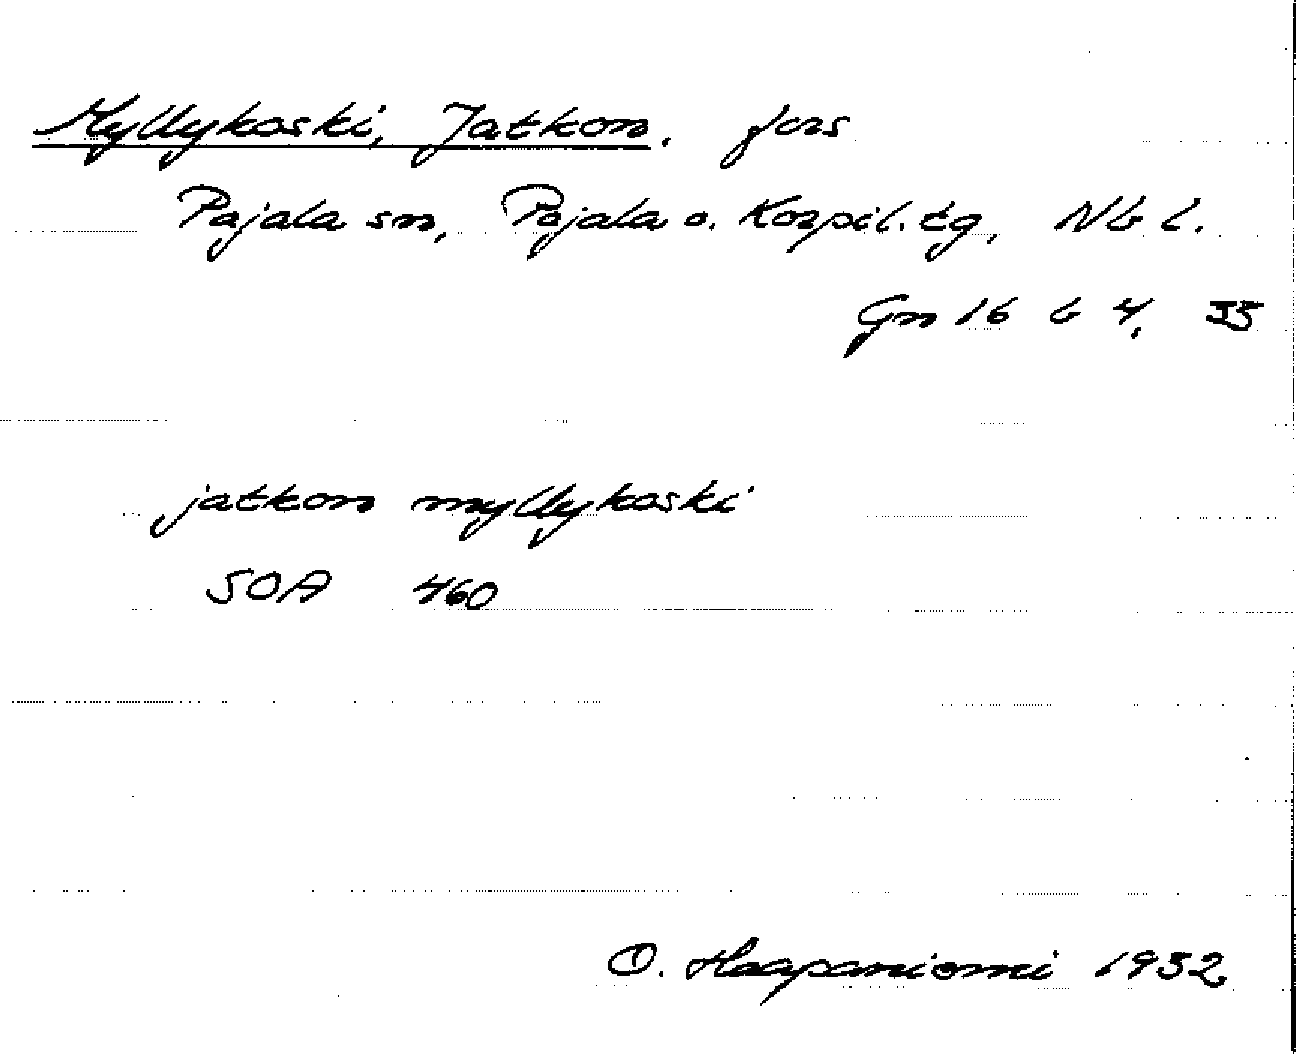 Myllykoski, Jatkon. fors
Pajala sn, Pajala o. Korpil. tg, Nb l.
Gn 16 b 4, 35
jatkon myllykoski
SOA 460
O. Haapaniemi 1932